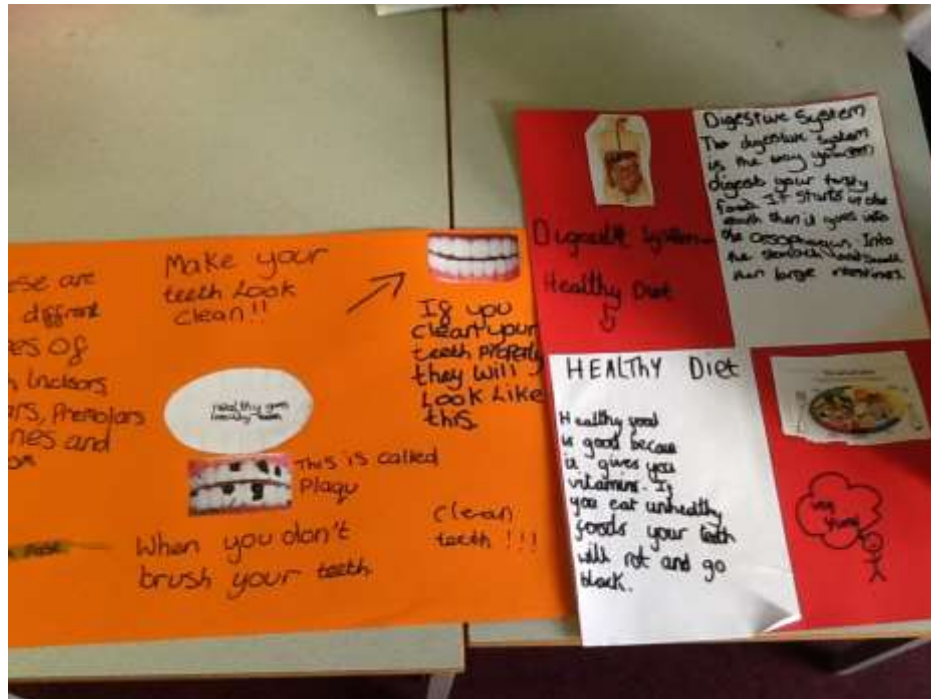 ese are
diffrent
es of
h incisors
ars, Premolars
nes and
Make your
teeth Look
clean!!
Healthy gums
healthy teeth
This is called
Plaqu
When you don't
brush your teeth
If you
clean your
teeth properly
they will
Look Like
this.
clean
teeth !!!
Digestive System
Healthy Diet
Digestive System
The digestive system
is the way you
digest your tasty
food. It starts in the
mouth then it goes into
the oesophagus. Into
the stomach and small
then large intestines.
HEALTHY Diet
Healthy food
is good becaus
it gives you
vitamins. If
you eat unhealthy
foods your teeth
will rot and go
black.